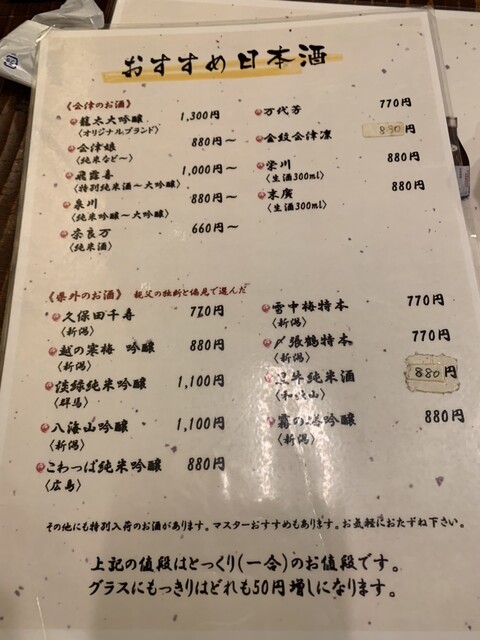 おすすめ日本酒
《会津のお酒》
龍太大吟醸 1,300円
〈オリジナルブランド〉
会津娘 880円～
〈純米など～〉
飛露喜 1,000円～
〈特別純米酒～大吟醸〉
泉川 880円～
〈純米吟醸～大吟醸〉
奈良万 660円～
〈純米酒〉
万代芳 770円
金紋会津凛 830円
栄川 880円
〈生酒300ml〉
末廣 880円
〈生酒300ml〉
《県外のお酒》 親父の独断と偏見で選んだ
久保田千寿 770円
〈新潟〉
越の寒梅 吟醸 880円
〈新潟〉
淡緑純米吟醸 1,100円
〈群馬〉
八海山吟醸 1,100円
〈新潟〉
こわっぱ純米吟醸 880円
〈広島〉
雪中梅特本 770円
〈新潟〉
〆張鶴特本 770円
〈新潟〉
純米酒 880円
〈和歌山〉
吟醸 880円
〈新潟〉
その他にも特別入荷のお酒があります。マスターおすすめもあります。お気軽におたずね下さい。
上記の値段はとっくり(一合)のお値段です。
グラスにもっきりはどれも50円増しになります。